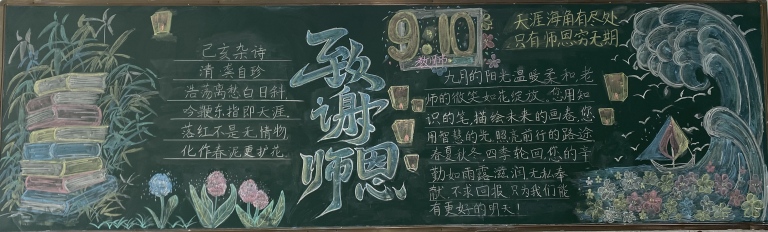 己亥杂诗
清 龚自珍
浩荡离愁白日斜
吟鞭东指即天涯.
落红不是无情物
化作春泥更护花.
致谢师恩
9.10
教师节
天涯海角有尽处
只有师恩穷无期
九月的阳光温暖柔和,老
师的微笑如花绽放.您用知
识的笔,描绘未来的画卷,您
用智慧的光,照亮前行的路途
春夏秋冬,四季轮回,您的辛
勤如雨露滋润,无私奉
献,不求回报,只为我们能
有更好的明天!